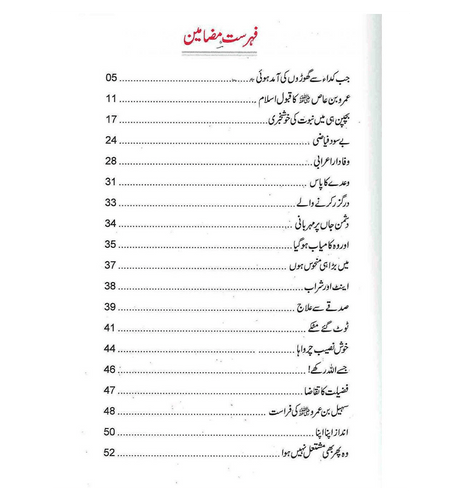 فہرست مضامین
جب کداء سے گھوڑوں کی آمد ہوئی 05
عمرو بن عاص ﷜ کا قبول اسلام 11
بچپن ہی میں نبوت کی خوشخبری 17
بے سود فیاضی 24
وفادار اعرابی 28
وعدے کا پاس 31
درگزر کرنے والے 33
دشمن جاں پر مہربانی 34
اور وہ کامیاب ہوگیا 35
میں بڑا ہی منحوس ہوں 37
اینٹ اور شراب 38
صدقے سے علاج 39
ٹوٹ گئے مٹکے 41
خوش نصیب چرواہا 44
جسے اللہ رکھے! 46
فضیلت کا تقاضا 47
سہیل بن عمرو ﷜ کی فراست 48
انداز اپنا اپنا 50
وہ پھر بھی مشتعل نہیں ہوا 52